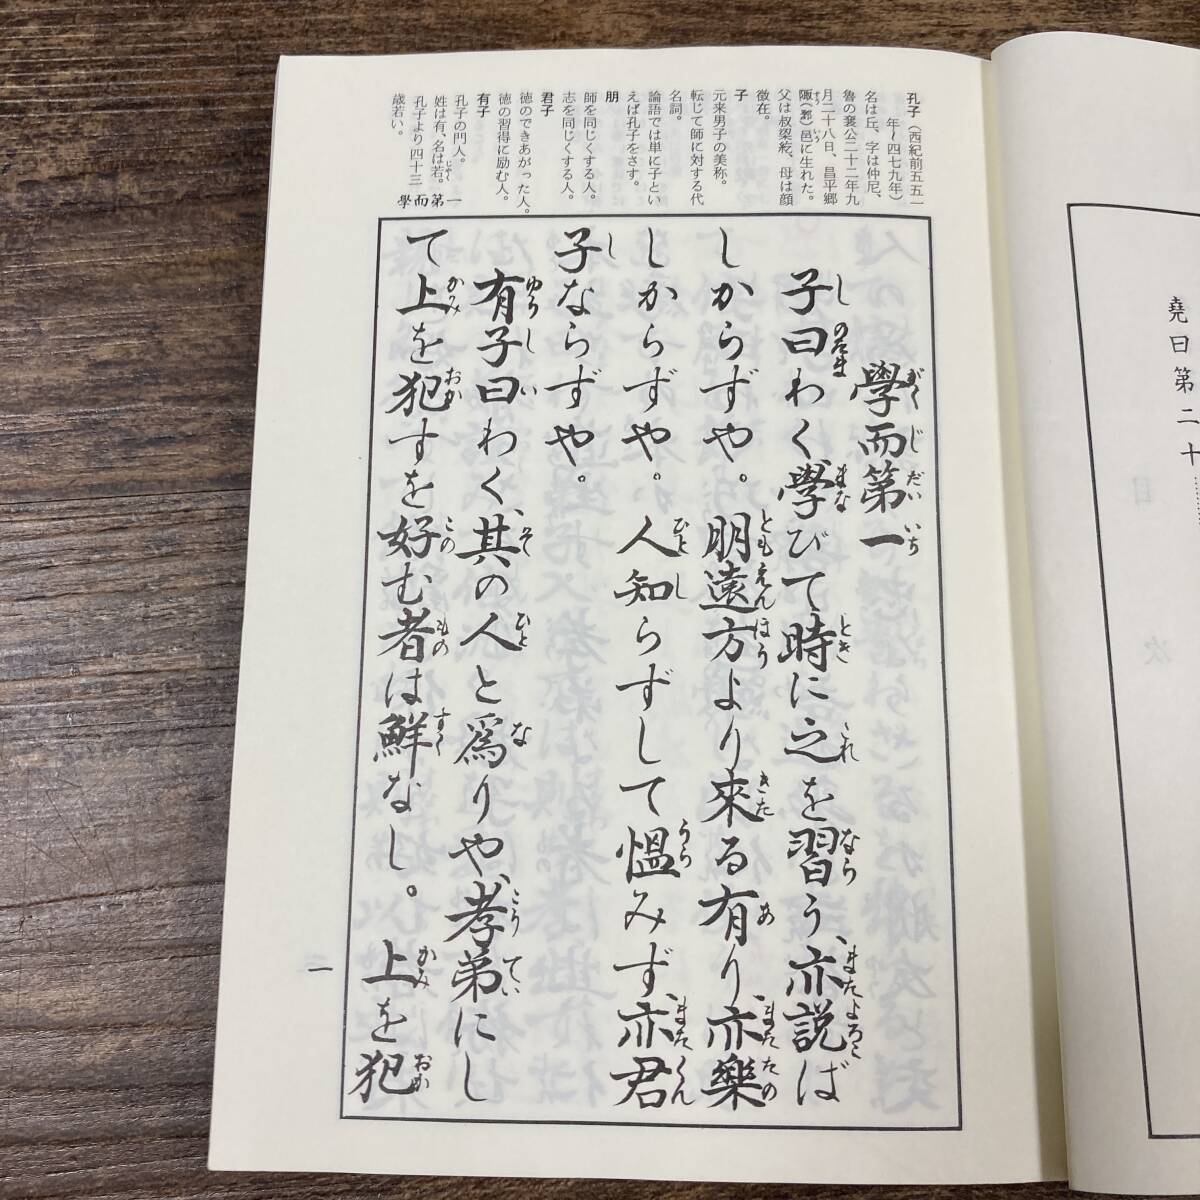 孔子（西紀前五五一
年～四七九年）
名は丘、字は仲尼、
魯の襄公二十二年九
月二十八日、昌平郷
陬（鄹）邑に生れた。
父は叔梁紇、母は顔
徴在。
子
元来男子の美称。
転じて師に対する代
名詞。
論語では単に子とい
えば孔子をさす。
朋
師を同じくする人。
志を同じくする人。
君子
徳のできあがった人。
徳の習得に励む人。
有子
孔子の門人。
姓は有、名は若。
孔子より四十三
歳若い。
學而第一
學而第一
子曰わく、學びて時に之を習う、亦説ば
しからずや。朋遠方より來る有り、亦樂
しからずや。人知らずして慍みず、亦君
子ならずや。
有子曰わく、其の人と爲りや、孝弟にし
て上を犯すを好む者は鮮なし。上を犯
一
堯曰第二十
目次